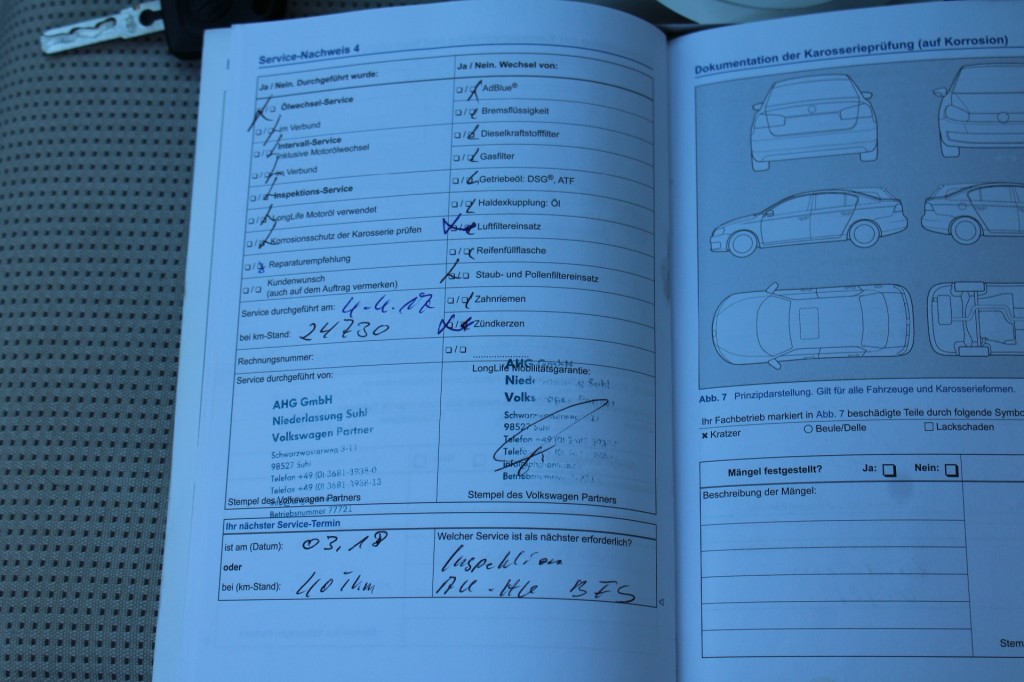 Service-Nachweis 4
Ja / Nein. Durchgeführt wurde:
Ölwechsel-Service
im Verbund
Intervall-Service
inklusive Motorölwechsel
im Verbund
Inspektions-Service
LongLife Motoröl verwendet
Korrosionsschutz der Karosserie prüfen
Reparaturempfehlung
Kundenwunsch
(auch auf dem Auftrag vermerken)
Service durchgeführt am: 4.4.17
bei km-Stand: 24730
Rechnungsnummer:
Service durchgeführt von:
AHG GmbH
Niederlassung Suhl
Volkswagen Partner
98527 Suhl
Telefon +49 (0) 3681-3938-0
Telefax +49 (0) 3681-3938-13
Betriebsnummer 77721
Stempel des Volkswagen Partners
Ja / Nein. Wechsel von:
AdBlue®
Bremsflüssigkeit
Dieselkraftstofffilter
Gasfilter
Getriebeöl: DSG®, ATF
Haldexkupplung: Öl
Luftfiltereinsatz
Reifenfüllflasche
Staub- und Pollenfiltereinsatz
Zahnriemen
Zündkerzen
LongLife Mobilitätsgarantie:
AHG GmbH
98527 Suhl
Telefon
Stempel des Volkswagen Partners
Ihr nächster Service-Termin
ist am (Datum): 03.18
oder
bei (km-Stand): 40 Tkm
Welcher Service ist als nächster erforderlich?
Inspektion
AU-HU BFS
Dokumentation der Karosserieprüfung (auf Korrosion)
Abb. 7 Prinzipdarstellung. Gilt für alle Fahrzeuge und Karosserieformen.
Ihr Fachbetrieb markiert in Abb. 7 beschädigte Teile durch folgende Symbo
Kratzer Beule/Delle Lackschaden
Mängel festgestellt? Ja: Nein:
Beschreibung der Mängel:
Stem